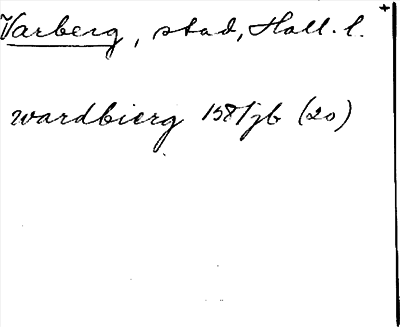 Varberg, stad, Hall. l.
wardbierg 1581jb (20)